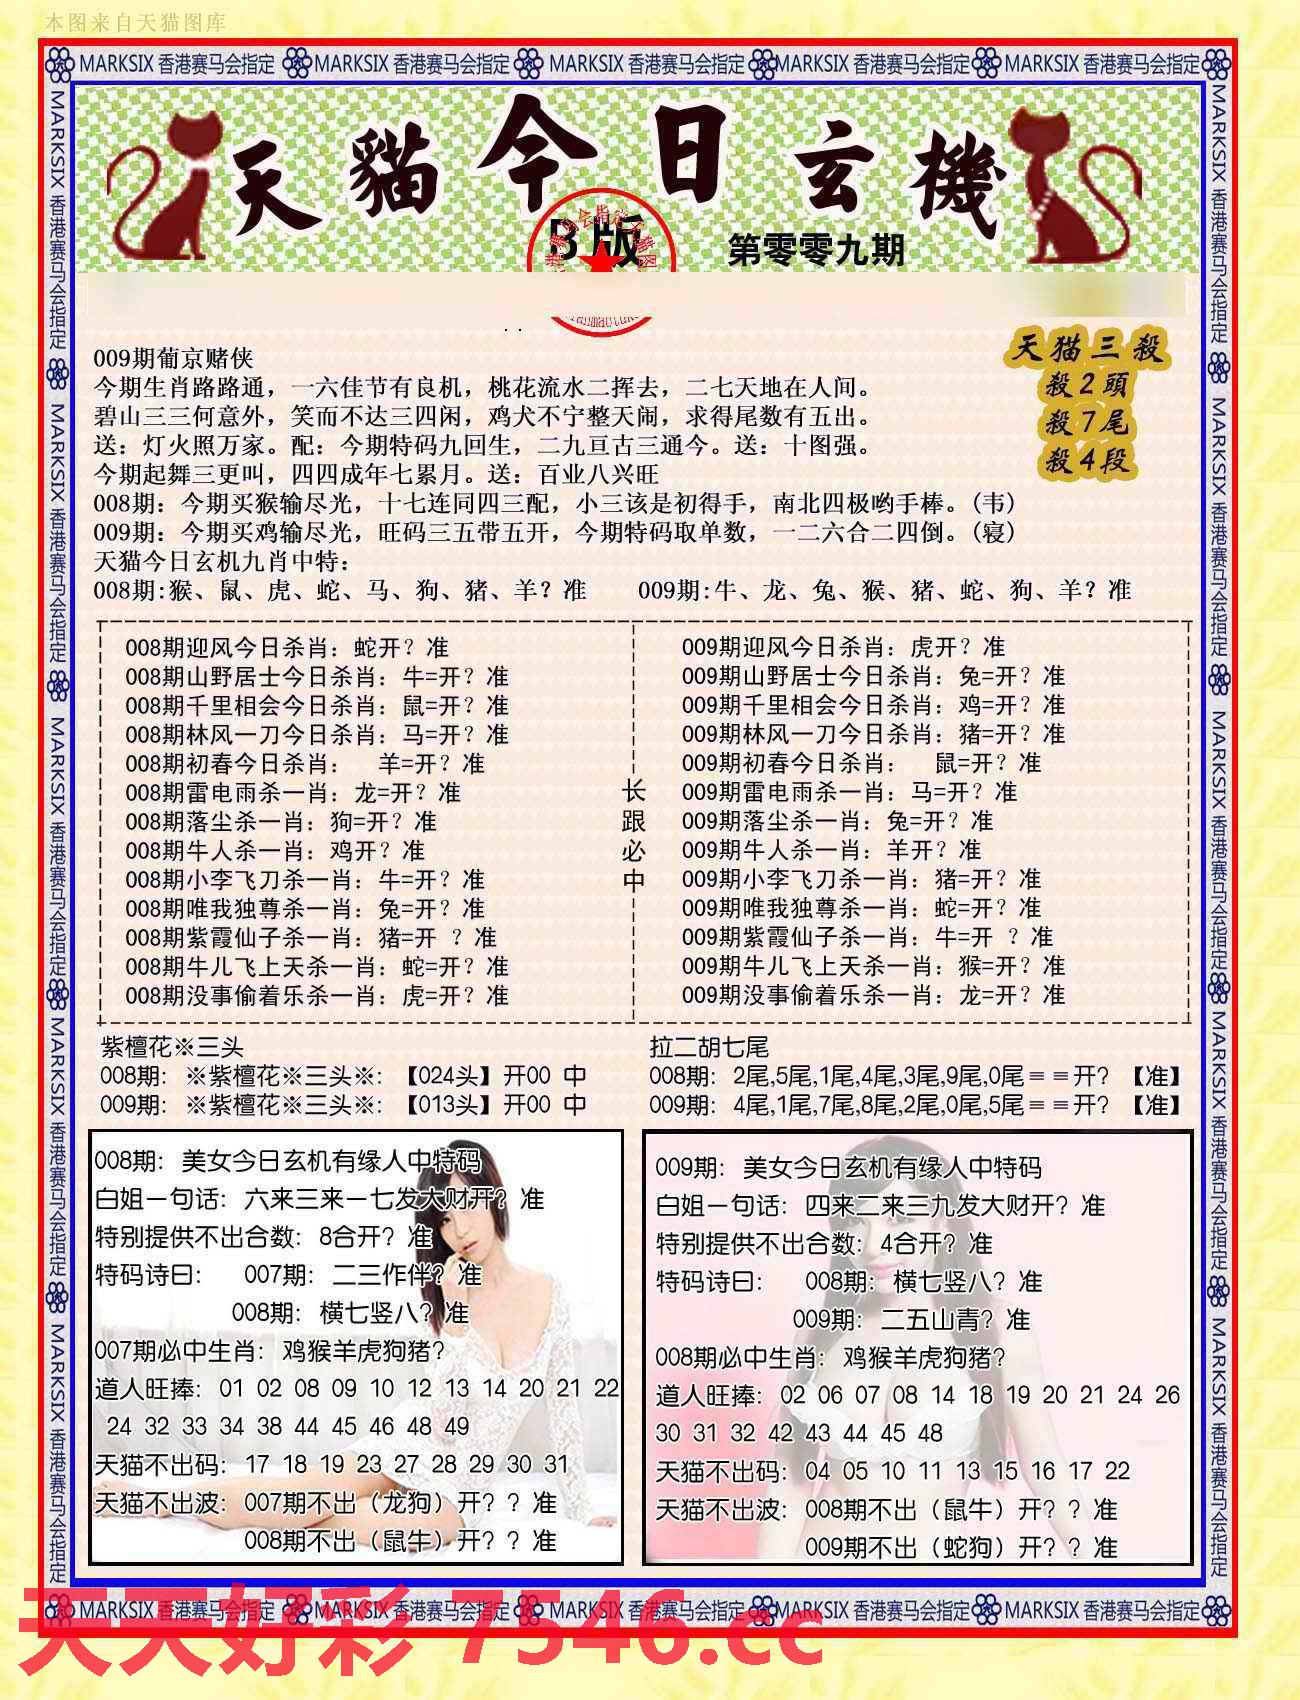 本图来自天猫图库
MARKSIX 香港赛马会指定 MARKSIX 香港赛马会指定 MARKSIX 香港赛马会指定 MARKSIX 香港赛马会指定 MARKSIX 香港赛马会指定
MARKSIX 香港赛马会指定 MARKSIX 香港赛马会指定 MARKSIX 香港赛马会指定 MARKSIX 香港赛马会指定 MARKSIX 香港赛马会指定
MARKSIX 香港赛马会指定 MARKSIX 香港赛马会指定 MARKSIX 香港赛马会指定 MARKSIX 香港赛马会指定 MARKSIX 香港赛马会指定
天貓今日玄機
B版
第零零九期
天猫三殺
殺2頭
殺7尾
殺4段
009期葡京赌侠
今期生肖路路通，一六佳节有良机，桃花流水二挥去，二七天地在人间。
碧山三三何意外，笑而不达三四闲，鸡犬不宁整天闹，求得尾数有五出。
送：灯火照万家。配：今期特码九回生，二九亘古三通今。送：十图强。
今期起舞三更叫，四四成年七累月。送：百业八兴旺
008期：今期买猴输尽光，十七连同四三配，小三该是初得手，南北四极哟手棒。(韦)
009期：今期买鸡输尽光，旺码三五带五开，今期特码取单数，一二六合二四倒。(寝)
天猫今日玄机九肖中特：
008期:猴、鼠、虎、蛇、马、狗、猪、羊？准 009期:牛、龙、兔、猴、猪、蛇、狗、羊？准
008期迎风今日杀肖：蛇开？准
008期山野居士今日杀肖：牛=开？准
008期千里相会今日杀肖：鼠=开？准
008期林风一刀今日杀肖：马=开？准
008期初春今日杀肖： 羊=开？准
008期雷电雨杀一肖：龙=开？准
008期落尘杀一肖：狗=开？准
008期牛人杀一肖：鸡开？准
008期小李飞刀杀一肖：牛=开？准
008期唯我独尊杀一肖：兔=开？准
008期紫霞仙子杀一肖：猪=开 ？准
008期牛儿飞上天杀一肖：蛇=开？准
008期没事偷着乐杀一肖：虎=开？准
长
跟
必
中
009期迎风今日杀肖：虎开？准
009期山野居士今日杀肖：兔=开？准
009期千里相会今日杀肖：鸡=开？准
009期林风一刀今日杀肖：猪=开？准
009期初春今日杀肖： 鼠=开？准
009期雷电雨杀一肖：马=开？准
009期落尘杀一肖：兔=开？准
009期牛人杀一肖：羊开？准
009期小李飞刀杀一肖：猪=开？准
009期唯我独尊杀一肖：蛇=开？准
009期紫霞仙子杀一肖：牛=开 ？准
009期牛儿飞上天杀一肖：猴=开？准
009期没事偷着乐杀一肖：龙=开？准
紫檀花※三头
008期：※紫檀花※三头※：【024头】开00 中
009期：※紫檀花※三头※：【013头】开00 中
拉二胡七尾
008期：2尾,5尾,1尾,4尾,3尾,9尾,0尾≡≡开？【准】
009期：4尾,1尾,7尾,8尾,2尾,0尾,5尾≡≡开？【准】
008期：美女今日玄机有缘人中特码
白姐一句话：六来三来一七发大财开？准
特别提供不出合数：8合开？准
特码诗曰： 007期：二三作伴？准
008期：横七竖八？准
007期必中生肖：鸡猴羊虎狗猪？
道人旺捧：01 02 08 09 10 12 13 14 20 21 22
24 32 33 34 38 44 45 46 48 49
天猫不出码：17 18 19 23 27 28 29 30 31
天猫不出波：007期不出（龙狗）开？？准
008期不出（鼠牛）开？？准
009期：美女今日玄机有缘人中特码
白姐一句话：四来二来三九发大财开？准
特别提供不出合数：4合开？准
特码诗曰： 008期：横七竖八？准
009期：二五山青？准
008期必中生肖：鸡猴羊虎狗猪？
道人旺捧：02 06 07 08 14 18 19 20 21 24 26
30 31 32 42 43 44 45 48
天猫不出码：04 05 10 11 13 15 16 17 22
天猫不出波：008期不出（鼠牛）开？？准
009期不出（蛇狗）开？？准
MARKSIX 香港赛马会指定 MARKSIX 香港赛马会指定 MARKSIX 香港赛马会指定 MARKSIX 香港赛马会指定 MARKSIX 香港赛马会指定
天天好彩 7546.cc